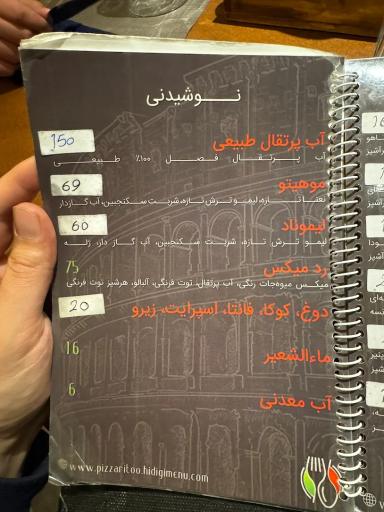 نـــوشیدنی
آب پرتقال طبیعی
150
آب پـــرتقـــال فصـــل ۱۰۰٪ طبیعـــی
موهیتو
69
نعنـــا تـــازه، لیمـو تـرش تـازه، شربـت سـکنجبین، آب گازدار
لیموناد
60
لیمو تـرش تـازه، شربـت سـکنجبین، آب گاز دار، ژلـه
رد میکس
75
میکـس میوه‌جات رنگی، آب پرتقال، توت فرنگی، آلبالو، هرشیز توت فرنگی
دوغ، کوکا، فانتا، اسپرایت، زیرو
20
ماءالشعیر
16
آب معدنی
6
www.pizzaritoo.hidigimenu.com